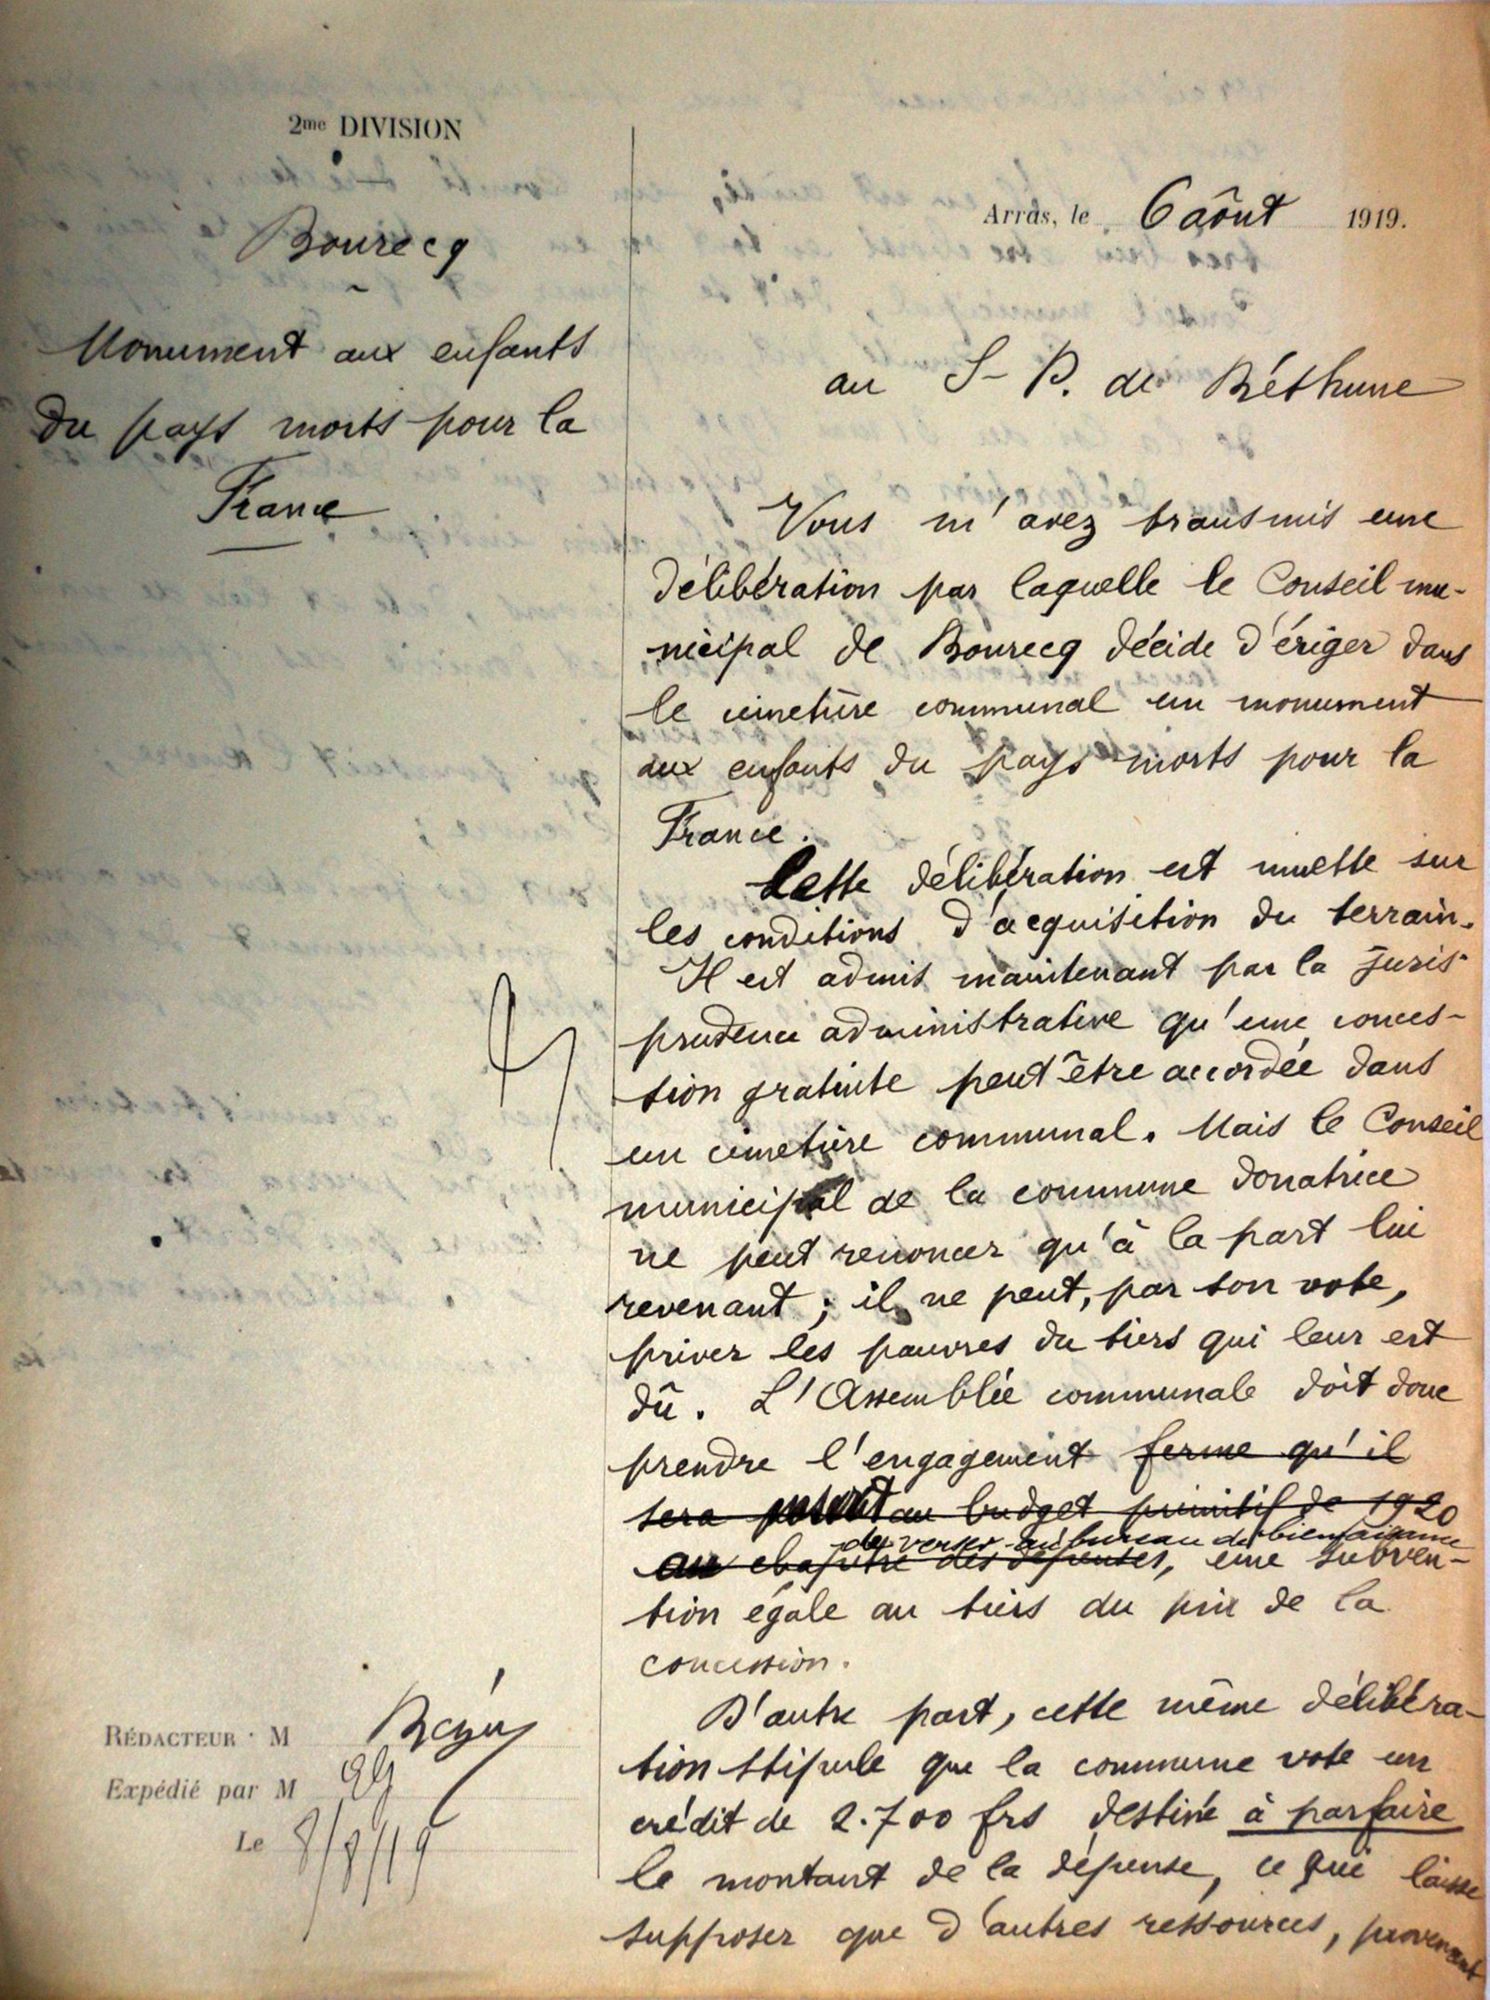 2me DIVISION
Bourecq
Monument aux enfants
du pays morts pour la
France
Arras, le 6 aôut 1919.
au S-P. de Béthune
Vous m'avez transmis une
délibération par laquelle le Conseil mu-
nicipal de Bourecq décide d'ériger dans
le cimetière communal un monument
aux enfants du pays morts pour la
France.
Cette délibération est muette sur
les conditions d'acquisition du terrain.
Il est admis maintenant par la juris-
prudence administrative qu'une conces-
sion gratuite peut être accordée dans
un cimetière communal. Mais le Conseil
municipal de la commune donatrice
ne peut renoncer qu'à la part lui
revenant ; il ne peut, par son vote,
priver les pauvres du tiers qui leur est
dû. L'Assemblée communale doit donc
prendre l'engagement ferme qu'il
sera au budget primitif de 1920
de verser au bureau de bienfaisance
au chapitre des dépenses, une subven-
tion égale au tiers du prix de la
concession.
D'autre part, cette même délibéra-
tion stipule que la commune vote un
crédit de 2.700 frs destiné à parfaire
le montant de la dépense, ce qui laisse
supposer que d'autres ressources, provenant
RÉDACTEUR : M
Expédié par M
Le 8/8/19